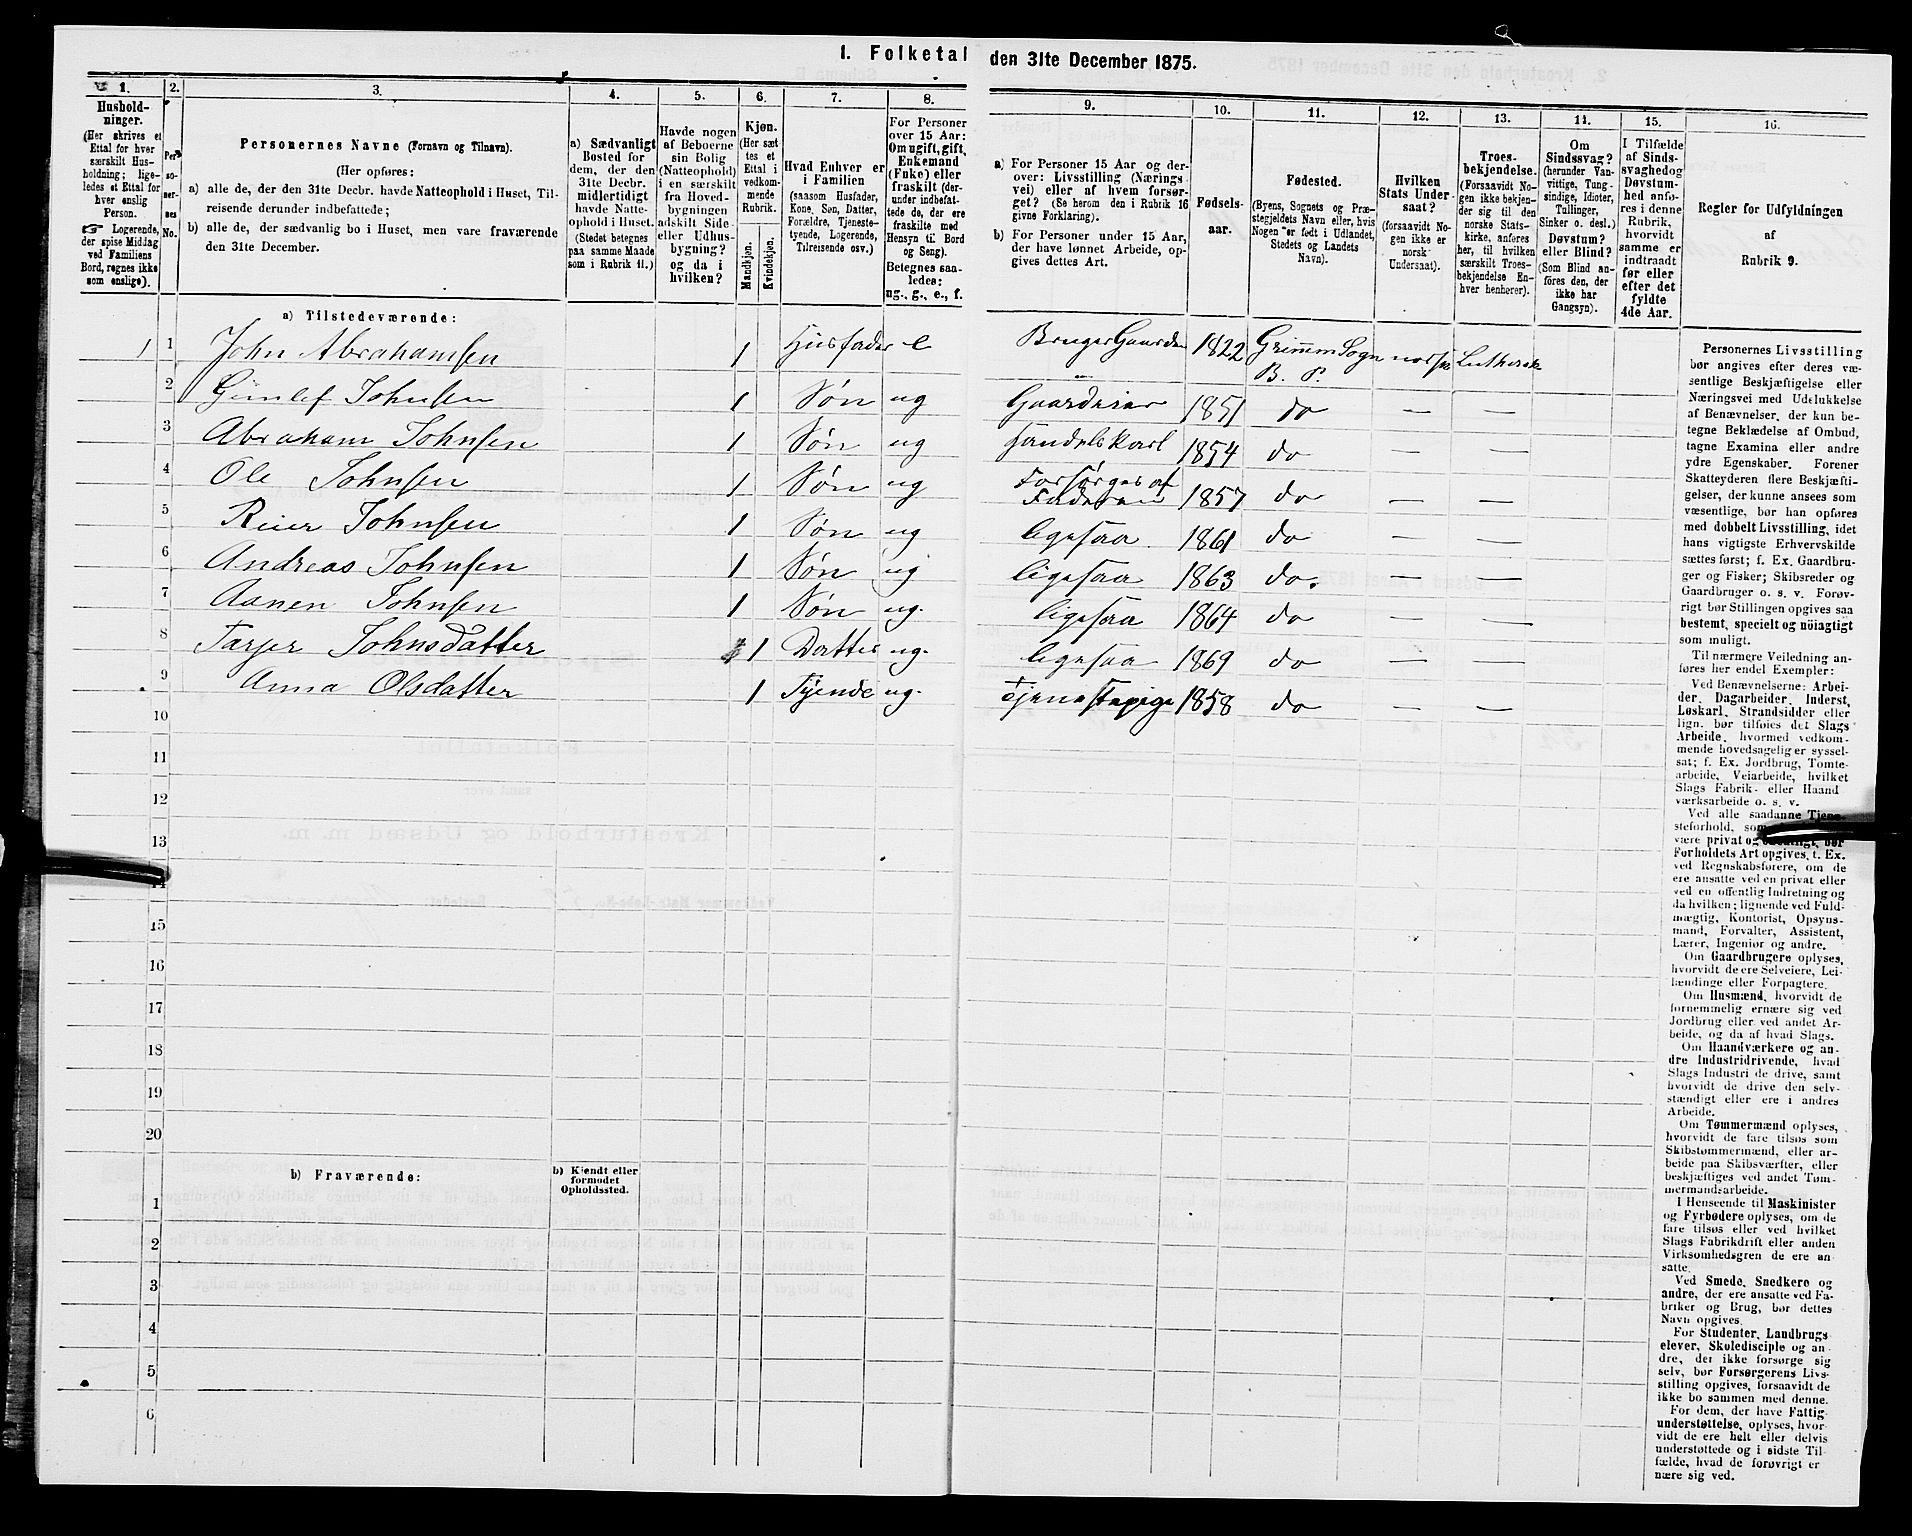 1. Folketal den 31te December 1875.
1. 2. 3. 4. 5. 6. 7. 8. 9. 10. 11. 12. 13. 14. 15. 16.
Hushold-
ninger.
(Her skrives et
Ettal for hver
særskilt Hus-
holdning; lige-
ledes et Ettal for
hver enslig
Person.
☞ Logerende,
der spise Middag
ved Familiens
Bord, regnes ikke
som enslige).
Per-
so-
ner-
nes
No.
Personernes Navne (Fornavn og Tilnavn).
(Her opføres:
a) alle de, der den 31te Decbr. havde Natteophold i Huset, Til-
reisende derunder indbefattede;
b) alle de, der sædvanlig bo i Huset, men vare fraværende
den 31te December.
a) Sædvanligt
Bosted for
dem, der den
31te Decbr.
midlertidigt
havde Natte-
ophold i Huset.
(Stedet betegnes
paa samme Maade
som i Rubrik 11.)
Havde nogen
af Beboerne
sin Bolig
(Natteophold)
i en særskilt
fra Hoved-
bygningen
adskilt Side-
eller Udhus-
bygning?
og da i
hvilken?
Kjøn.
(Her sæt
tes et
Ettal i
vedkom-
mende
Rubrik.
Mandkjøn.
Kvindekjøn.
Hvad Enhver er
i Familien
(saasom Husfader,
Kone, Søn, Datter,
Forældre, Tjeneste-
tyende, Logerende,
Tilreisende osv.)
For Personer
over 15 Aar:
Om ugift, gift,
Enkemand
(Enke) eller
fraskilt (der-
under indbefat-
tede de, der ere
fraskilte med
Hensyn til Bord
og Seng).
Betegnes saa-
ledes:
ug., g., e., f.
a) For Personer 15 Aar og der-
over: Livsstilling (Nærings
vei) eller af hvem forsør-
get? (Se herom den i Rubrik 16
givne Forklaring).
b) For Personer under 15 Aar,
der have lønnet Arbeide, op-
gives dettes Art.
Fødsels-
aar.
Fødested.
(Byens, Sognets og Præ-
stegjeldets Navn eller, hvis
Nogen er født i Udlandet,
Stedets og Landets
Navn).
Hvilken
Stats Under-
saat?
(forsaavidt No-
gen ikke er
norsk
Undersaat).
Troes-
bekjendelse.
(Forsaavidt No-
gen ikke bekjen-
der sig til den
norske Stats-
kirke, anføres
her, til hvilken
særskilt Troes-
bekjendelse En-
hver henhører).
Om
Sindssvag?
(herunder Van-
vittige, Tung-
sindige, Idioter,
Tullinger,
Sinker o. desl.)
Døvstum?
eller Blind?
(Som Blind an-
føres den, der
ikke har
Gangsyn).
I Tilfælde
af Sinds-
svaghedog
Døvstum-
hed anfø-
res i denne
Rubrik,
hvorvidt
samme er
indtraadt
før eller
efter det
fyldte
4de Aar.
Regler for Udfyldningen
af
Rubrik 9.
a) Tilstedeværende:
1 1 John Abrahamsen 1 Husfader e Bruger Gaarden 1822 Grimm Sogn norsk Luthersk
B. P.
2 Gunlef Johnsen 1 Søn ug 1851 do — —
3 Abraham Johnsen 1 Søn ug Handelskarl 1854 do — —
4 Ole Johnsen 1 Søn ug Forsørges af
Faderen 1857 do — —
5 Reier Johnsen 1 Søn ug ligesaa 1861 do — —
6 Andreas Johnsen 1 Søn ug ligesaa 1863 do. — —
7 Aanen Johnsen 1 Søn ug. ligesaa 1864 do — —
8 Tarjer Johnsdatter 1 Datter ug. ligesaa 1869 do — —
9 Anna Olsdatter 1 Tyende ug. Tjenestepige 1858 do — —
10
11
12
13
14
15
16
17
18
19
20
b) Fraværende:
b) Kjendt eller
formodet
Opholdssted.
1
2
3
4
5
6
Personernes Livsstilling
bør angives efter deres væ-
sentlige Beskjæftigelse eller
Næringsvei med Udelukkelse
af Benævnelser, der kun be-
tegne Beklædelse af Ombud,
tagne Examina eller andre
ydre Egenskaber. Forener
Skatteyderen flere Beskjæfti-
gelser, der kunne ansees som
væsentlige, bør han opføres
med dobbelt Livsstilling, idet
hans vigtigste Erhvervskilde
sættes først; f. Ex. Gaardbru-
ger og Fisker; Skibsreder og
Gaardbruger o. s. v. Forøv-
rigt bør Stillingen opgives saa
bestemt, specielt og nöiagtigt
som muligt.
Til nærmere Veiledning an-
føres her endel Exempler:
Ved Benævnelserne: Arbei-
der, Dagarbeider, Inderst,
Løskarl, Strandsidder eller
lign. bør tilføies det Slags
Arbeide, hvormed vedkom-
mende hovedsagelig er syssel-
sat; f. Ex. Jordbrug, Tomte-
arbeide, Veiarbeide, hvilket
Slags Fabrik- eller Haand
værksarbeide o. s. v.
Ved alle saadanne Tjene-
steforhold, som
være privat og offentligt, bør
Forholdets Art opgives, t. Ex.
ved Regnskabsførere, om de
ere ansatte ved en privat eller
ved en offentlig Indretning og
da hvilken; lignende ved Fuld-
mægtig, Kontorist, Opsyns-
mand, Forvalter, Assistent,
Lærer, Ingeniør og andre.
Om Gaardbrugere oplyses,
hvorvidt de ere Selveiere, Lei-
lændinge eller Forpagtere.
Om Husmænd, hvorvidt de
fornemmelig ernære sig ved
Jordbrug eller ved andet Ar-
beide, og da af hvad Slags.
Om Haandværkere og an-
dre Industridrivende, hvad
Slags Industri de drive, samt
hvorvidt de drive den selv-
stændigt eller ere i andres
Arbeide.
Om Tømmermænd oplyses,
hvorvidt de fare tilsøs som
Skibstømmermænd, eller ar-
beide paa Skibsværfter, eller
beskjæftiges ved andet Tøm-
mermandsarbeide.
I Henseende til Maskinister
og Fyrbødere oplyses, om de
fare tilsøs eller ved hvilket
Slags Fabrikdrift eller anden
Virksomhedsgren de ere an-
satte.
Ved Smede, Snedkere og
andre, der ere ansatte ved Fa-
briker og Brug, bør dettes
Navn opgives.
For Studenter, Landbrugs
elever, Skoledisciple og an-
dre, der ikke forsørge sig
selv, bør Forsørgerens Livs-
stilling opgives, forsaavidt de
ikke bo sammen med denne.
For dem, der have Fattig-
understøttelse, oplyses, hvor-
vidt de ere helt eller delvis
understøttede og i sidste Til-
fælde, hvad de forøvrigt er
nære sig ved.